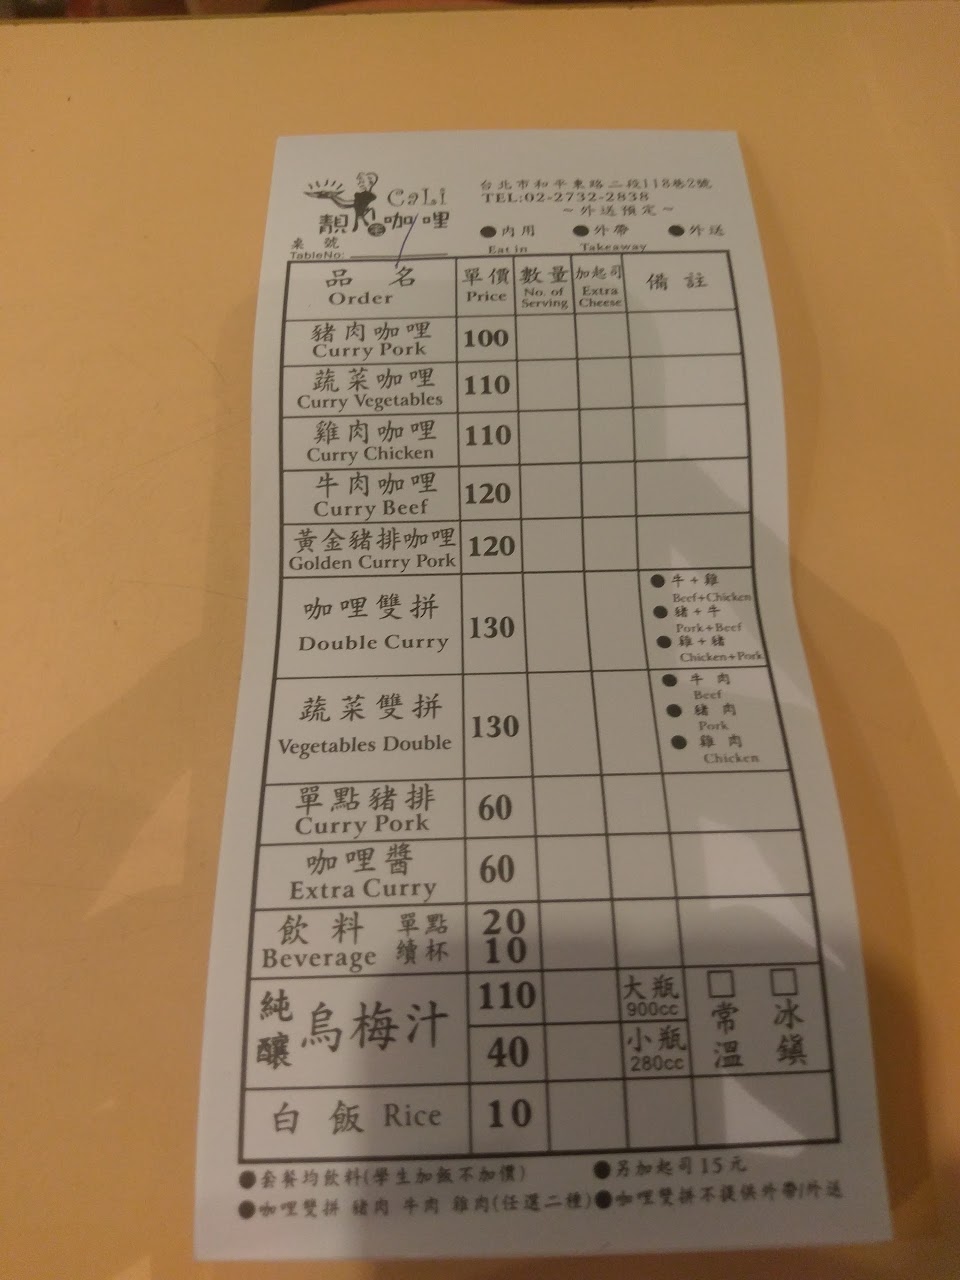 CaLi
靚咖哩
台北市和平東路二段118巷2號
TEL:02-2732-2838
~外送預定~
●內用 ●外帶 ●外送
Eat in Takeaway
桌號
TableNo:
品名 單價 數量 加起司 備註
Order Price No. of Serving Extra Cheese
豬肉咖哩 100
Curry Pork
蔬菜咖哩 110
Curry Vegetables
雞肉咖哩 110
Curry Chicken
牛肉咖哩 120
Curry Beef
黃金豬排咖哩 120
Golden Curry Pork
咖哩雙拼 130
Double Curry
●牛+雞
Beef+Chicken
●豬+牛
Pork+Beef
●雞+豬
Chicken+Pork
蔬菜雙拼 130
Vegetables Double
●牛肉
Beef
●豬肉
Pork
●雞肉
Chicken
單點豬排 60
Curry Pork
咖哩醬 60
Extra Curry
飲料 單點 20
Beverage 續杯 10
純釀烏梅汁
110 大瓶 900cc
40 小瓶 280cc
□常溫 □冰鎮
白飯 Rice 10
●套餐均飲料(學生加飯不加價) ●另加起司15元
●咖哩雙拼 豬肉 牛肉 雞肉(任選二種) ●咖哩雙拼不提供外帶/外送